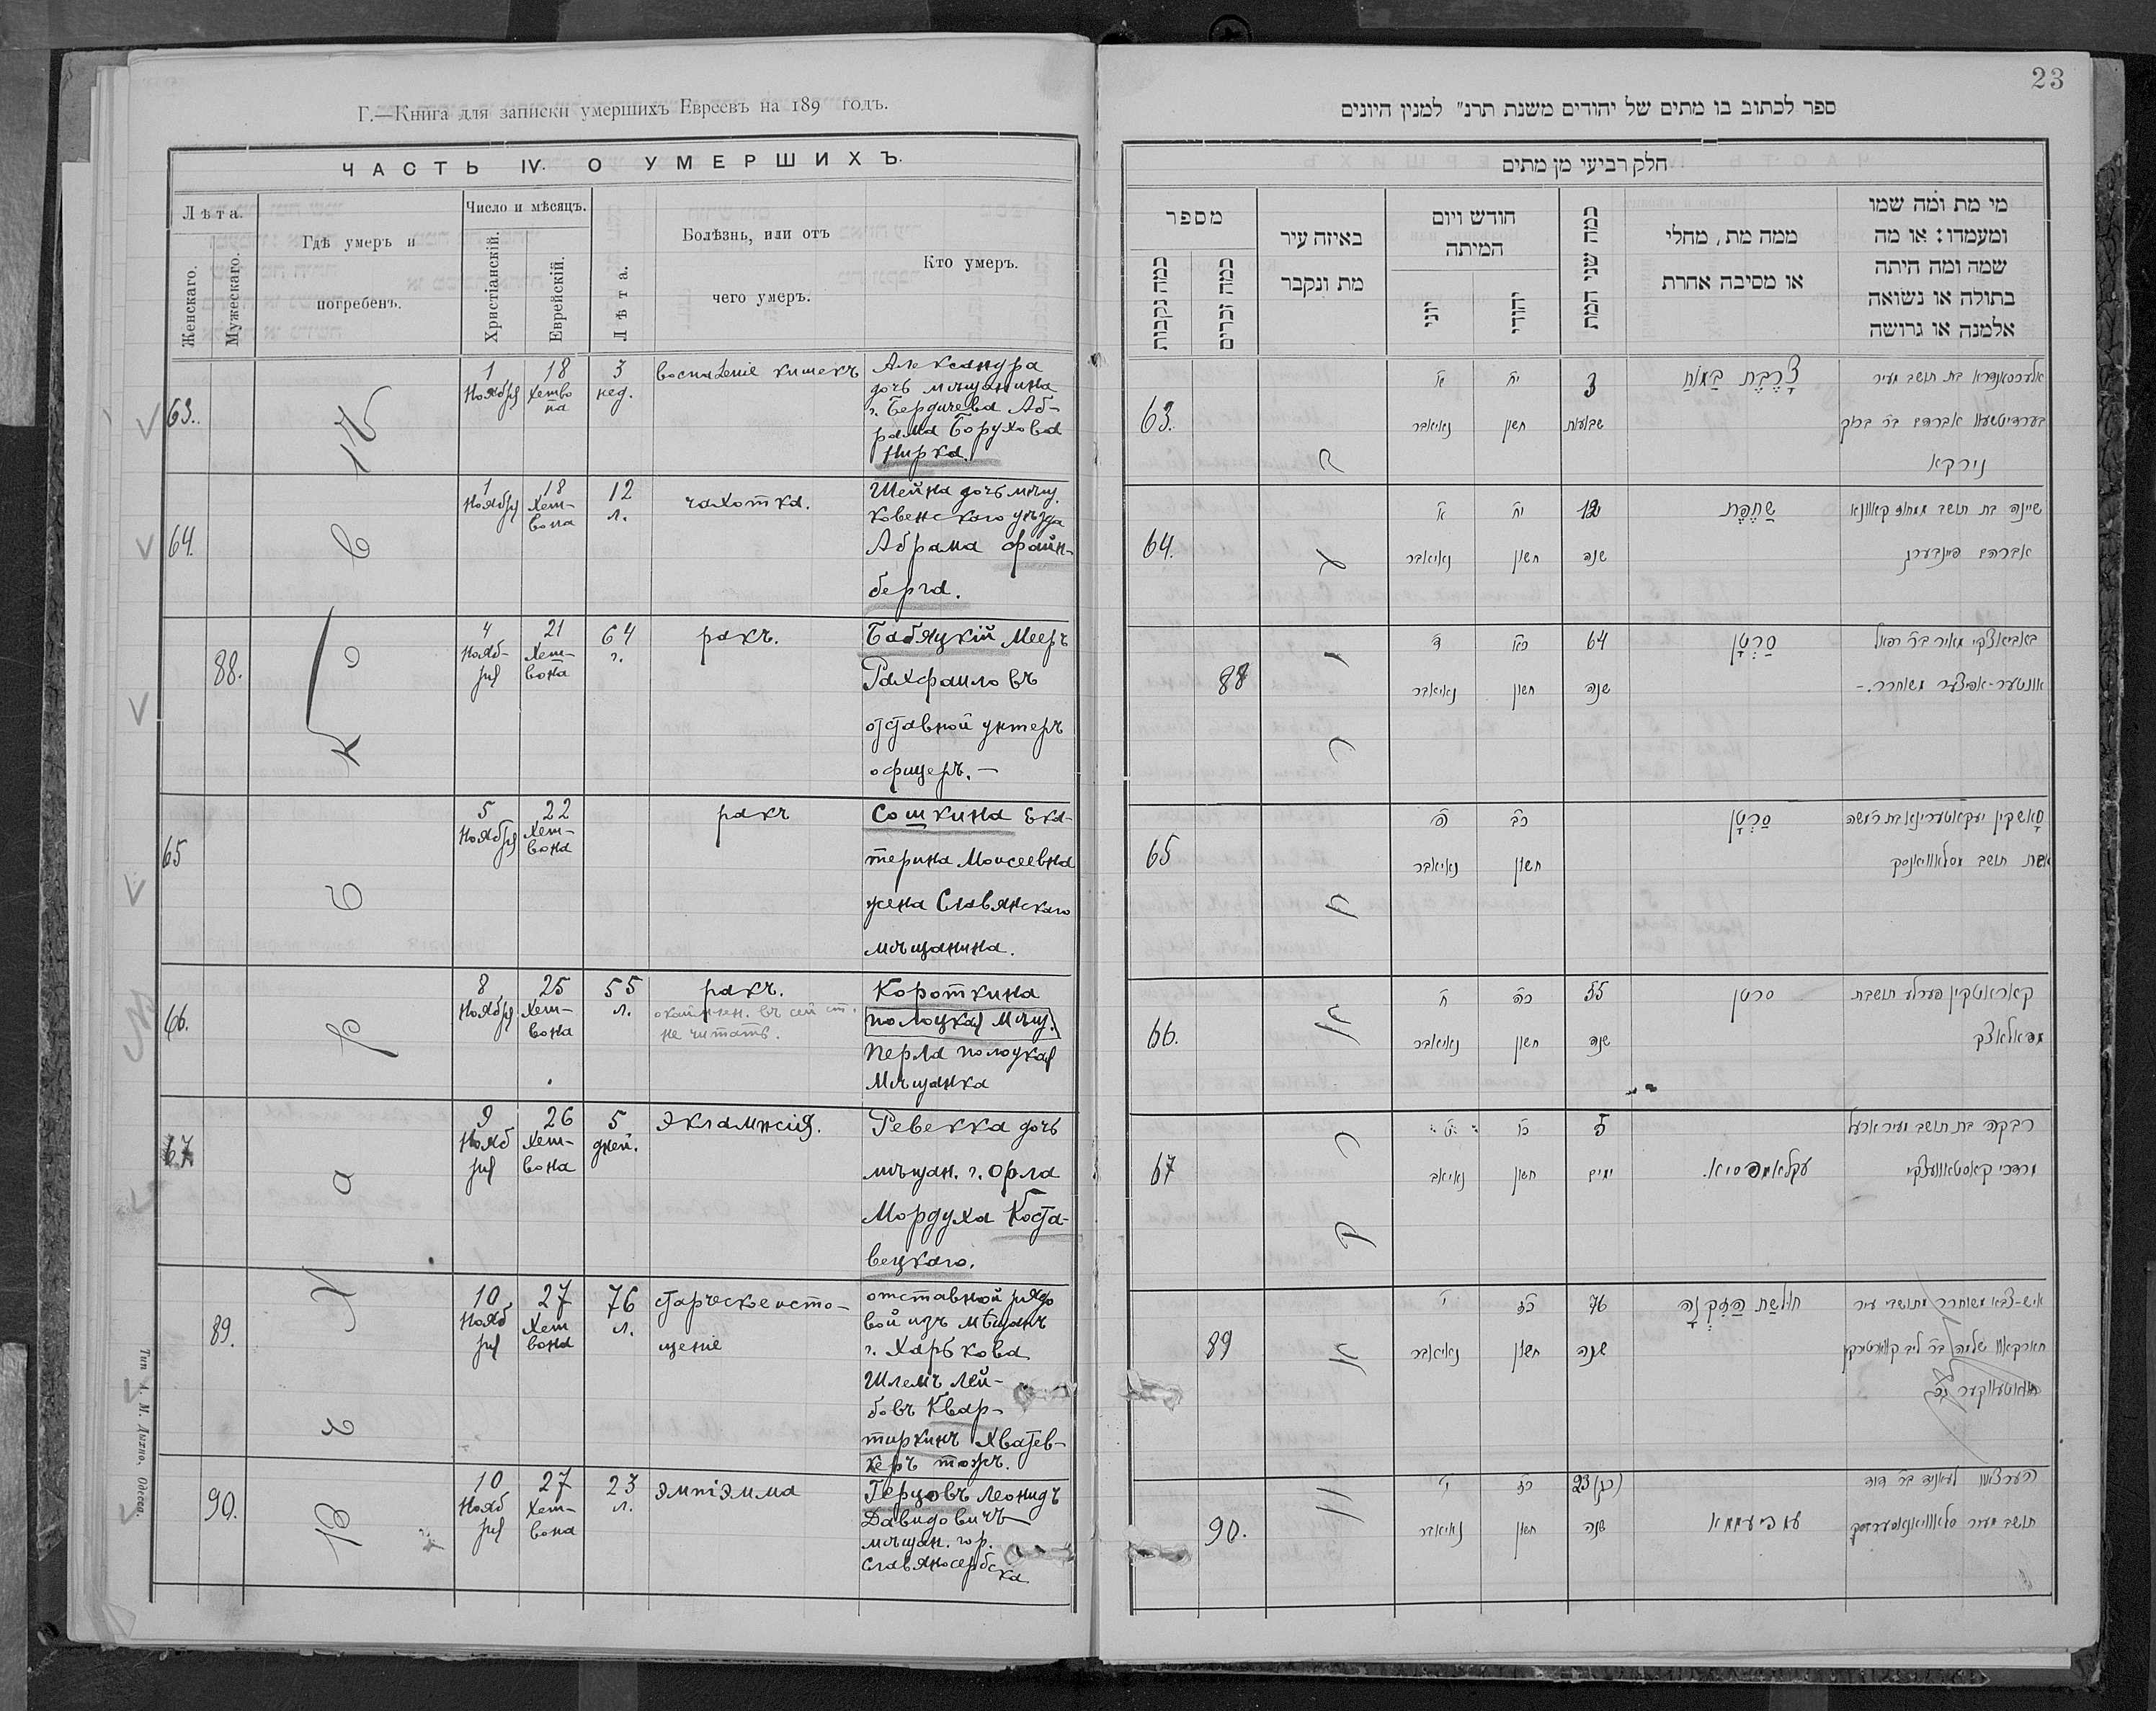 Г.—Книга для записки умершихъ Евреевъ на 189 годъ.
ЧАСТЬ IV. О УМЕРШИХЪ.
Лѣта.
Женскаго.
Мужескаго.
Гдѣ умеръ и
погребенъ.
Число и мѣсяцъ.
Христіанскій.
Еврейскій.
Лѣта.
Болѣзнь, или отъ
чего умеръ.
Кто умеръ.
63.
1
Ноября
18
Хешво
на
3
нед.
воспаленіе кишекъ
Александра
дочь мѣщанина
г. Бердичева Аб-
рама Борухова
Нирка.
64.
1
Ноября
18
Хеш-
вона
12
л.
чахотка.
Шейна дочь мѣщ.
Ковенскаго уѣзда
Абрама Файн-
берга.
88.
4
Нояб-
ря
21
Хеш-
вона
64
г.
ракъ.
Бабяцкій Мееръ
Рахфаиловъ
отставной унтеръ
офицеръ.—
65
5
Ноября
22
Хеш-
вона
ракъ
Сошкина Ека-
терина Моисеевна
жена Славянскаго
мѣщанина.
66.
8
Ноября
25
Хеш-
вона
55
л.
ракъ.
не читать.
Короткина
полоцкая мѣщ.
Перла полоцкая
мѣщанка
67
9
Нояб
ря
26
Хеш-
вона
5
дней.
эклампсія.
Ревекка дочь
мѣщан. г. Орла
Мордуха Коста-
вецкаго.
89.
10
Нояб
ря
27
Хеш
вона
76
л.
старческое исто-
щеніе
отставной рядо
вой изъ мѣщанъ
г. Харькова
Шлемъ Лей-
бовъ Квар-
тиркинъ Хватев-
керъ тожъ.
90.
10
Нояб
ря
27
Хеш-
вона
23
л.
эмпіэмма
Герцовъ Леонидъ
Давидовичъ
мѣщан. гор.
Славяносербска
Тип. А. М. Дыхно, Одесса.
23
ספר לכתוב בו מתים של יהודים משנת תרנ״ למנין היונים
חלק רביעי מן מתים
מספר
כמה נקבות
כמה זכרים
באיזה עיר
מת ונקבר
חודש ויום
המיתה
יוני
יהודי
כמה שני המת
ממה מת, מחלי
או מסיבה אחרת
מי מת ומה שמו
ומעמדו: או מה
שמה ומה היתה
בתולה או נשואה
אלמנה או גרושה
63.
א
נאיאבר
יח
חשון
3
שבועות
אלעקסאנדרא בת תושב מעיר
בערדיטשעוו אברהם בר ברוך
נירקא
64.
א
נאיאבר
יח
חשון
12
שנה
שַׁחֶפֶת
שיינה בת תושב ממחוז קאוונא
אברהם פיינבערג
88
ד
נאיאבר
כא
חשון
64
שנה
סַרְטָן
באביאצקי מאיר בר רפאל
אונטער-אפיצער משוחרר.-
65
ה
נאיאבר
כב
חשון
סַרְטָן
סאשקין יעקאטערינא בת משה
אשת תושב מסלאוויאנסק
66.
ח
נאיאבר
כה
חשון
55
שנה
סרטן
קאראטקין פערלע תושבת
מפאלאצק
67
נאיאב
כו
חשון
5
ימים
עקלאמפסיא.
רבקה בת תושב מעיר אריאל
מרדכי קאסטאוועצקי
89
י
נאיאבר
כז
חשון
76
שנה
חולשַת הַזִקְנָה
איש-צבא משוחרר מתושבי עיר
חארקאוו שלמה בר ליב קווארטירקין
90.
י
נאיאבר
כז
חשון
23
שנה
עמפיעממא
הערצאוו לעאניד בר דוד
תושב מעיר סלאוויאנאסערבסק